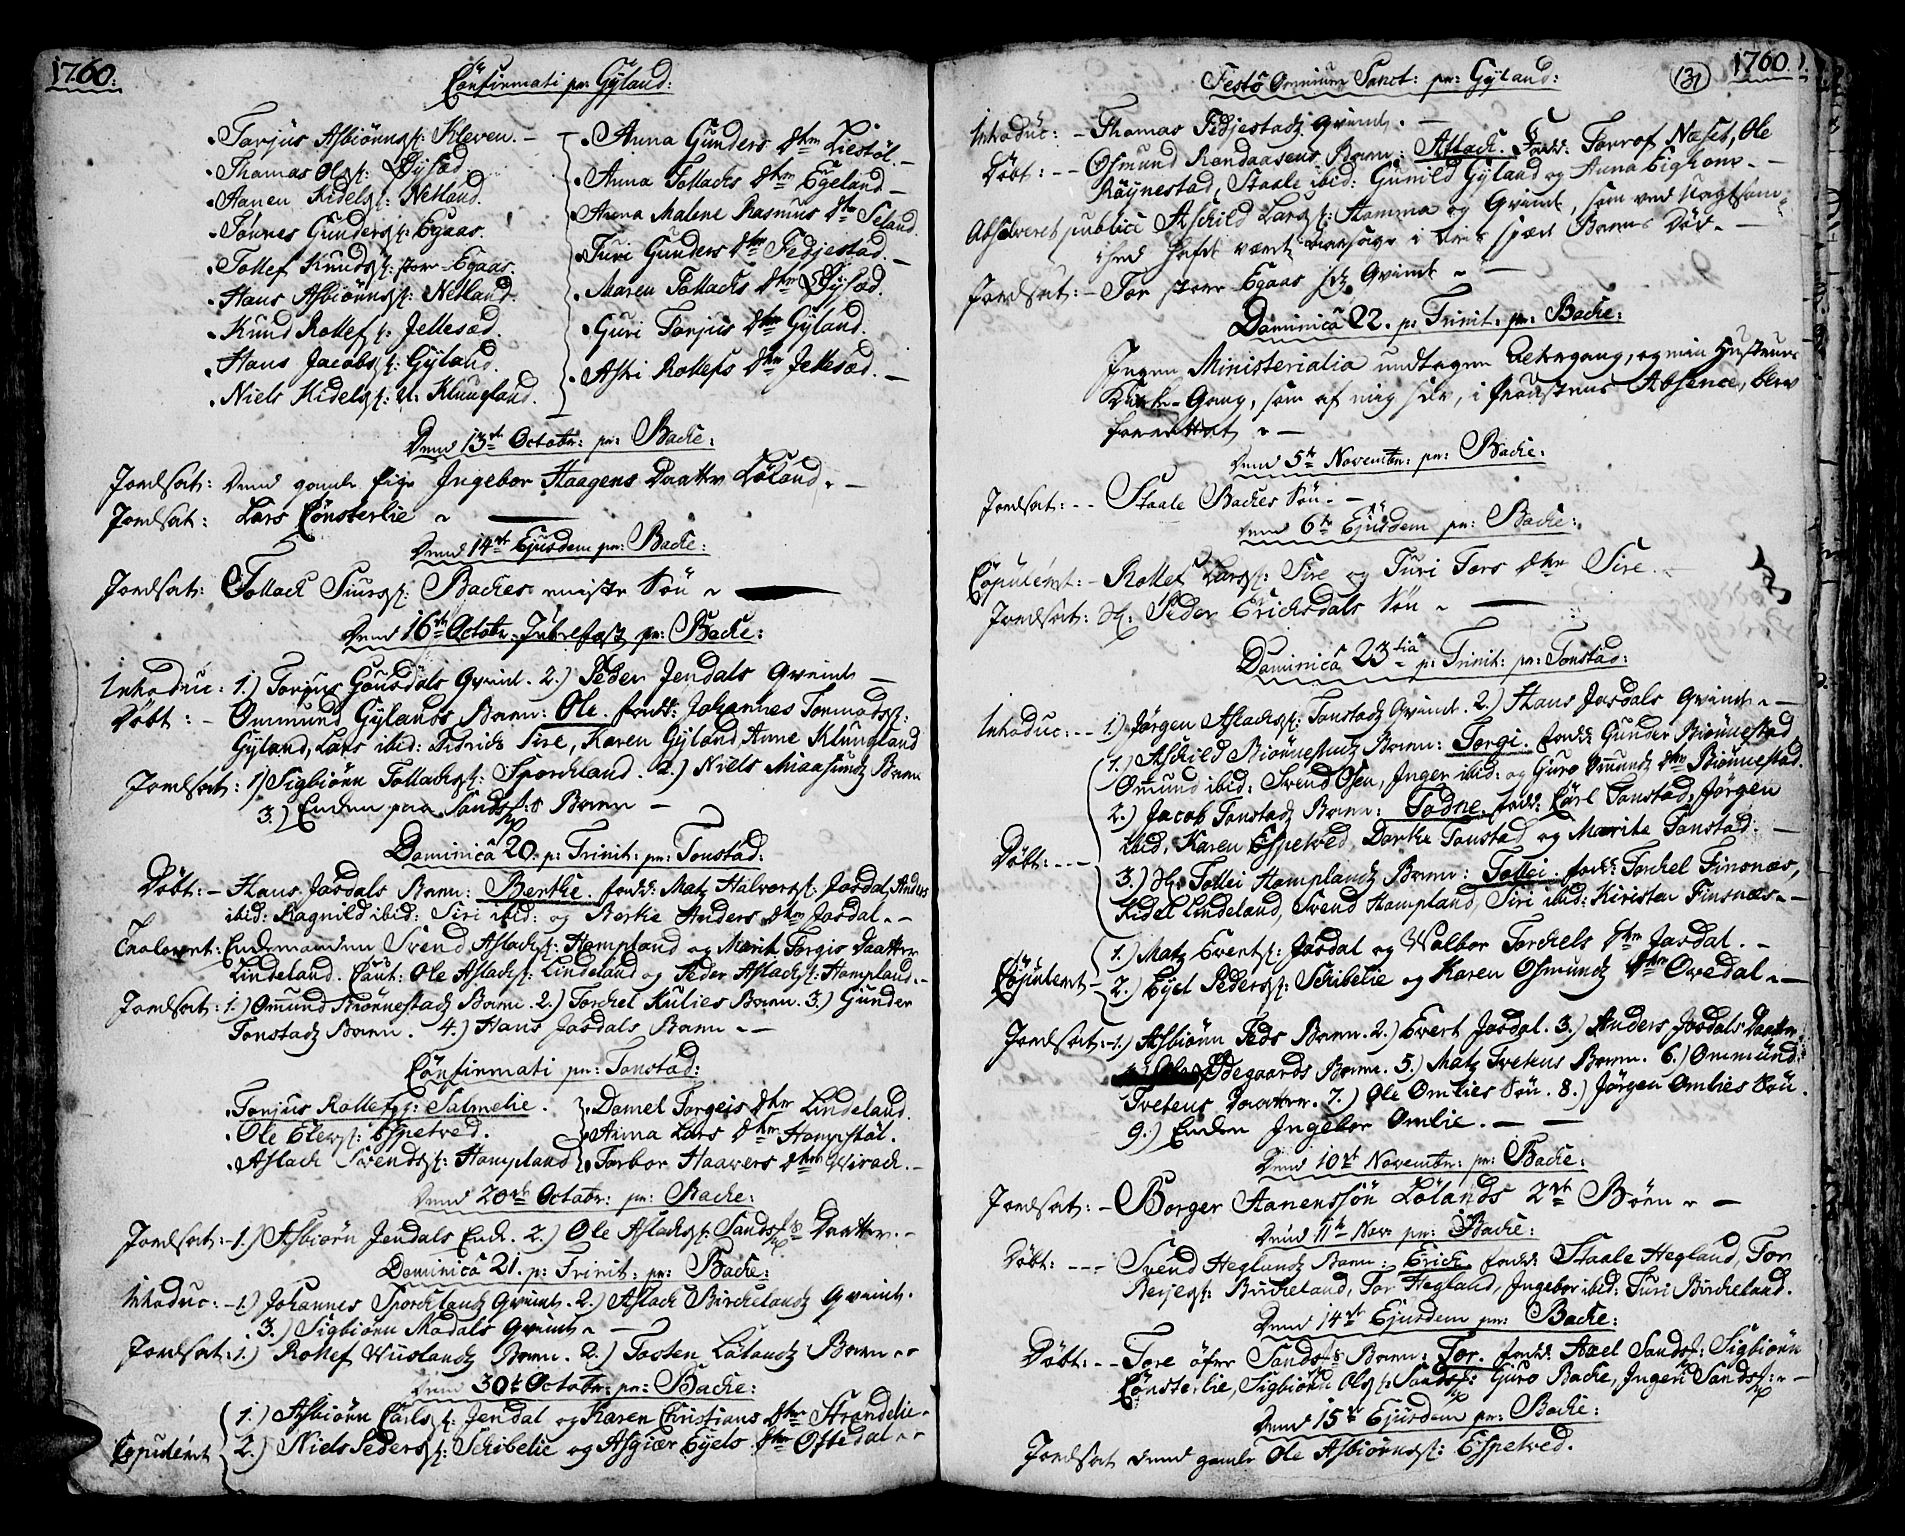 1760.
Confirmati pr: Gÿland:
Tarjus Asbiörnss: Kleven. –
Thomas Ols: Öÿsæd.
Hanen Kidels: Netland.
Tönnes Gunders: Egaas.
Tollef Knuds: store Egaas.
Hans Asbiörns: Netland.
Knud Rollefs: Jellesæd.
Hans Jacobs: Gÿland.
Niels Kidels: N. Klungland.
Anna Gunders Dtr Liestöl. –
Anna Tollachs Dtr Egeland –
Anna Malene Rasmus Dtr Seland.
Turi Gunders Dtr Fedjestad. –
Maren Tollachs Dtr Öÿsæd.
Guri Torjus Dtr Gÿland.
Astri Rollefs Dtr Jellesæd. –
Dend 13de Octobr: pr: Backe:
Jordsat: Dend gamle Pige Ingebor Haagens Daatter Löland. –
Jordsat: Lars Cönsterlie
Dend 14de Ejusdem pr: Backe:
Jordsat: Tollach Siurs: Backes mindste Sön
Dend 16de Octobr: Jubelfest pr: Backe:
Introduc: 1.) Torjus Gausdals Qvinde. 2.) Peder Jendals Qvinde –
Döbt: – Ommund Gÿlands Barn: Ole. fadd: Johannes Tormods:
Gÿland, Lars ibid: Didrich Sire, Karen Gÿland, Anne Klungland
Jordsat: 1) Sigbiörn Tollachs: Sporckland. 2.) Niels Maasunds Barn
3.) Enken paa Sands Barn –
Dominica 20. p: Trinit: pr: Tonstad:
Döbt: – Hans Josdals Barn: Berthe. fadd: Matz Halvors: Josdal, Anders
ibid: Ragnild ibid: Siri ibid: og Berte Anders Dtr Josdal. –
Trolovet: Enkemanden Svend Aslachs: Hompland og Marit Torgis Daatter
Lindeland. Caut: Ole Aslachs: Lindeland og Peder Aslachs: Hompland. –
Jordsat: 1.) Omund Biönnestadz Barn. 2.) Torckel Kulies Barn. 3.) Gunder
Tonstadz Barn. 4.) Hans Josdals Barn –
Confirmati pr: Tonstad:
Torjus Rollefs: Salmelie.
Ole Elevs: Espetved.
Aslach Svends: Hompland
Dornel Torgeis Dtr Lindeland.
Anna Lars Dtr Hompstöl.
Torbor Haavers Dtr Virach. –
Dend 20de Octobr: pr: Backe:
Jordsat: – 1.) Asbiörn Jendals Enke. 2.) Ole Aslachs: Sands Daatter. –
Dominica 21. p: Trinit: pr: Backe:
Introduc: – 1.) Johannes Sporcklandz Qvinde. 2.) Aslach Birchelandz Qvinde.
3.) Sigbiörn Modals Qvinde –
Jordsat: 1.) Rollef Vuslandz Barn. 2.) Tosten Lölandz Barn
Dend 30te Octobr: pr: Backe:
Copuleret 1.) Asbiörn Carls: Jendal og Karen Christians Dtr Strandelie
2.) Niels Peders: Schibelie og Asgiær Eÿels Dtr Oftedal
1760.
131
Festo Omnium Sanct: pr: Gÿland:
Introduc: – Thomas Fedjestadz Qvinde. –
Döbt: – – Osmund Rondaasens Barn: Attlach. Fadd: Torrof Næset, Ole
Röÿnestad, Staale ibid: Gunild Gÿland og Anna Eighom. –
Absolveret publici Askild Lars: Stomma og Qvinde, som ved Uagtsom-
ihed hafde været Aarsage i deris spæde Barns Död. –
Jordsat: – Tor store Egaas hs. Qvinde –
Dominica 22. p: Trinit: pr: Backe:
Ingen Ministerialia undtagen Altergang, og min Hustrues
Kirke-Gang, som af mig selv, i Provstens Absence, blev
forrettet –
Dend 5te Novembr: pr: Backe:
Jordsat: – – Staale Backes Sön. –
Dend 6te Ejusdem pr: Backe:
Copuleret: – Rollef Lars: Sire og Turi Tors Dtr Sire.
Jordsat: Sl: Peder Ericksdals Sön
Dominica 23tia p: Trinit: pr: Tonstad:
Introduc: – – 1.) Jörgen Aslachs: Tonstadz Qvinde. 2.) Hans Josdals Qvinde –
Döbt: – – – 1.) Askild Biönnestadz Barn: Torgi. fadd: Gunder Biönnestad
Omund ibid: Svend Osen, Inger ibid: og Guro Omundz Dtr Biönnestad.
2.) Jacob Tonstadz Barn: Todne. fadd: Carl Tonstad, Jörgen
ibid, Karen Espetved, Dorthe Tonstad og Marite Tonstad. –
3.) Sl: Tollei Homplandz Barn: Tollei. fadd: Torckel Finsnæs,
Kidel Lindeland, Svend Hompland, Siri ibid: Kirsten Finsnæs. –
Copuleret – 1.) Matz Everts: Josdal og Valbor Torckels Dtr Josdal. –
2.) Eÿel Peders: Schibelie og Karen Osmundz Dtr Ovedal. –
Jordsat: – 1.) Asbiörn Feds Barn. 2.) Evert Josdal. 3.) Anders Josdals Daatter.
Ödegaards Barn. 5.) Matz Tvetens Barn. 6.) Ommund
Tvetens Daatter. 7.) Ole Omlies Sön. 8.) Jörgen Omlies Sön.
9.) Enken Ingebor Omlie. – –
Dend 10de Novembr: pr: Backe:
Jordsat: – Borger Hanenssön Lölands 2de Börn –
Dend 11te Nov: pr: Backe:
Döbt: – – – Svend Heglandz Barn: Erich. fadd: Staale Hegland, Tor
Reÿers: Bircheland, Tor Hegland, Ingebor ibid: Turi Bircheland.
Dend 14de Ejusdem pr: Backe:
Döbt: – – Tore öfre Sands Barn: Tor. fadd: Axel Sands: Sigbiörn
Cönsterlie, Sigbiörn Ols: Sands: Guro Backe, Ingen Sands: –
Dend 15de Ejusdem pr: Backe:
Jordsat dend gamle Ole Asbiörns: Espetved.